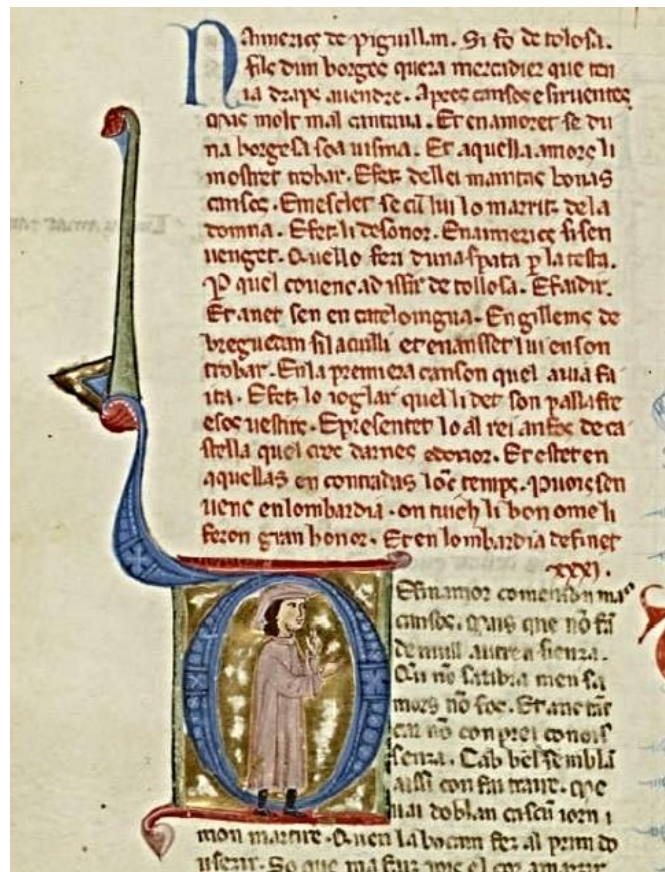 Naimerics de piguillan. Si fo de tolosa.
fils dun borges quera mercadier que ten
ia draps auendre. Apres cansos e siruentes
mas molt mal cantaua. Et enamoret se du
na borgesa soa uisina. Et aquella amors li
mostret trobar. Efetz dellei maintas bonas
cansos. Emesclet se cū lui lo marritz dela
domna. Efetz li desonor. Enaimerics si sen
uenget. Quello feri duna spata p la testa.
P quel couenc ad issir de tollosa. Efaidir.
Et anet sen en cateloingua. En gillems de
breguetam sil aculli et enansset lui en son
trobar. En la premiera canson quel auia fa
ita. Efetz lo ioglar quel li det son pallafre
e sos uestirs. Epresentet lo al rei anfos de ca
stella quel crec darnes edonor. Et estet en
aquellas en contradas lōc temps. Puois sen
uenc enlombardia. on tuich li bon ome li
feron gran honor. Et en lombardia definet
xxxi.
DE fin amor comenson mas
cansos. Mais que nō fā
de nuill autra sienza.
Qu nō saubra men sa
mors nō fos. Et anc tāt
car nō conprei conois
senza. Cab bel semblā
aissi con fai traire. que
uai doblan cascū iorn
mon martire. Quen la bocam fez al prim do
usezir. So que ma faitz pois el cor amarzir